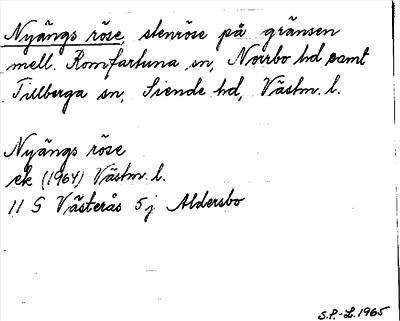 Nyängs röse, stenröse på gränsen
mell. Romfartuna sn, Norrbo hd samt
Tillberga sn, Siende hd, Västm. l.
Nyängs röse
ek (1964) Västm. l.
11 G Västerås 5 j Aldersbo
S.P.-L. 1965